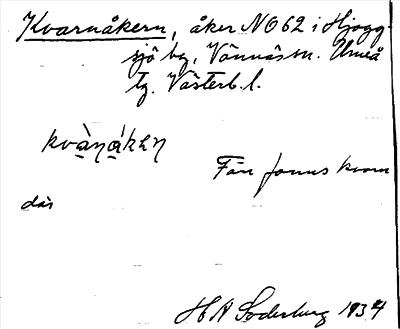 Kvarnåkern, åker NO 62 i Hjogg-
sjö by, Vännäs sn. Umeå
tg. Västerb. l.
kvàṇákəṇ
Förr fanns kvarn
där
H A Söderberg 1934